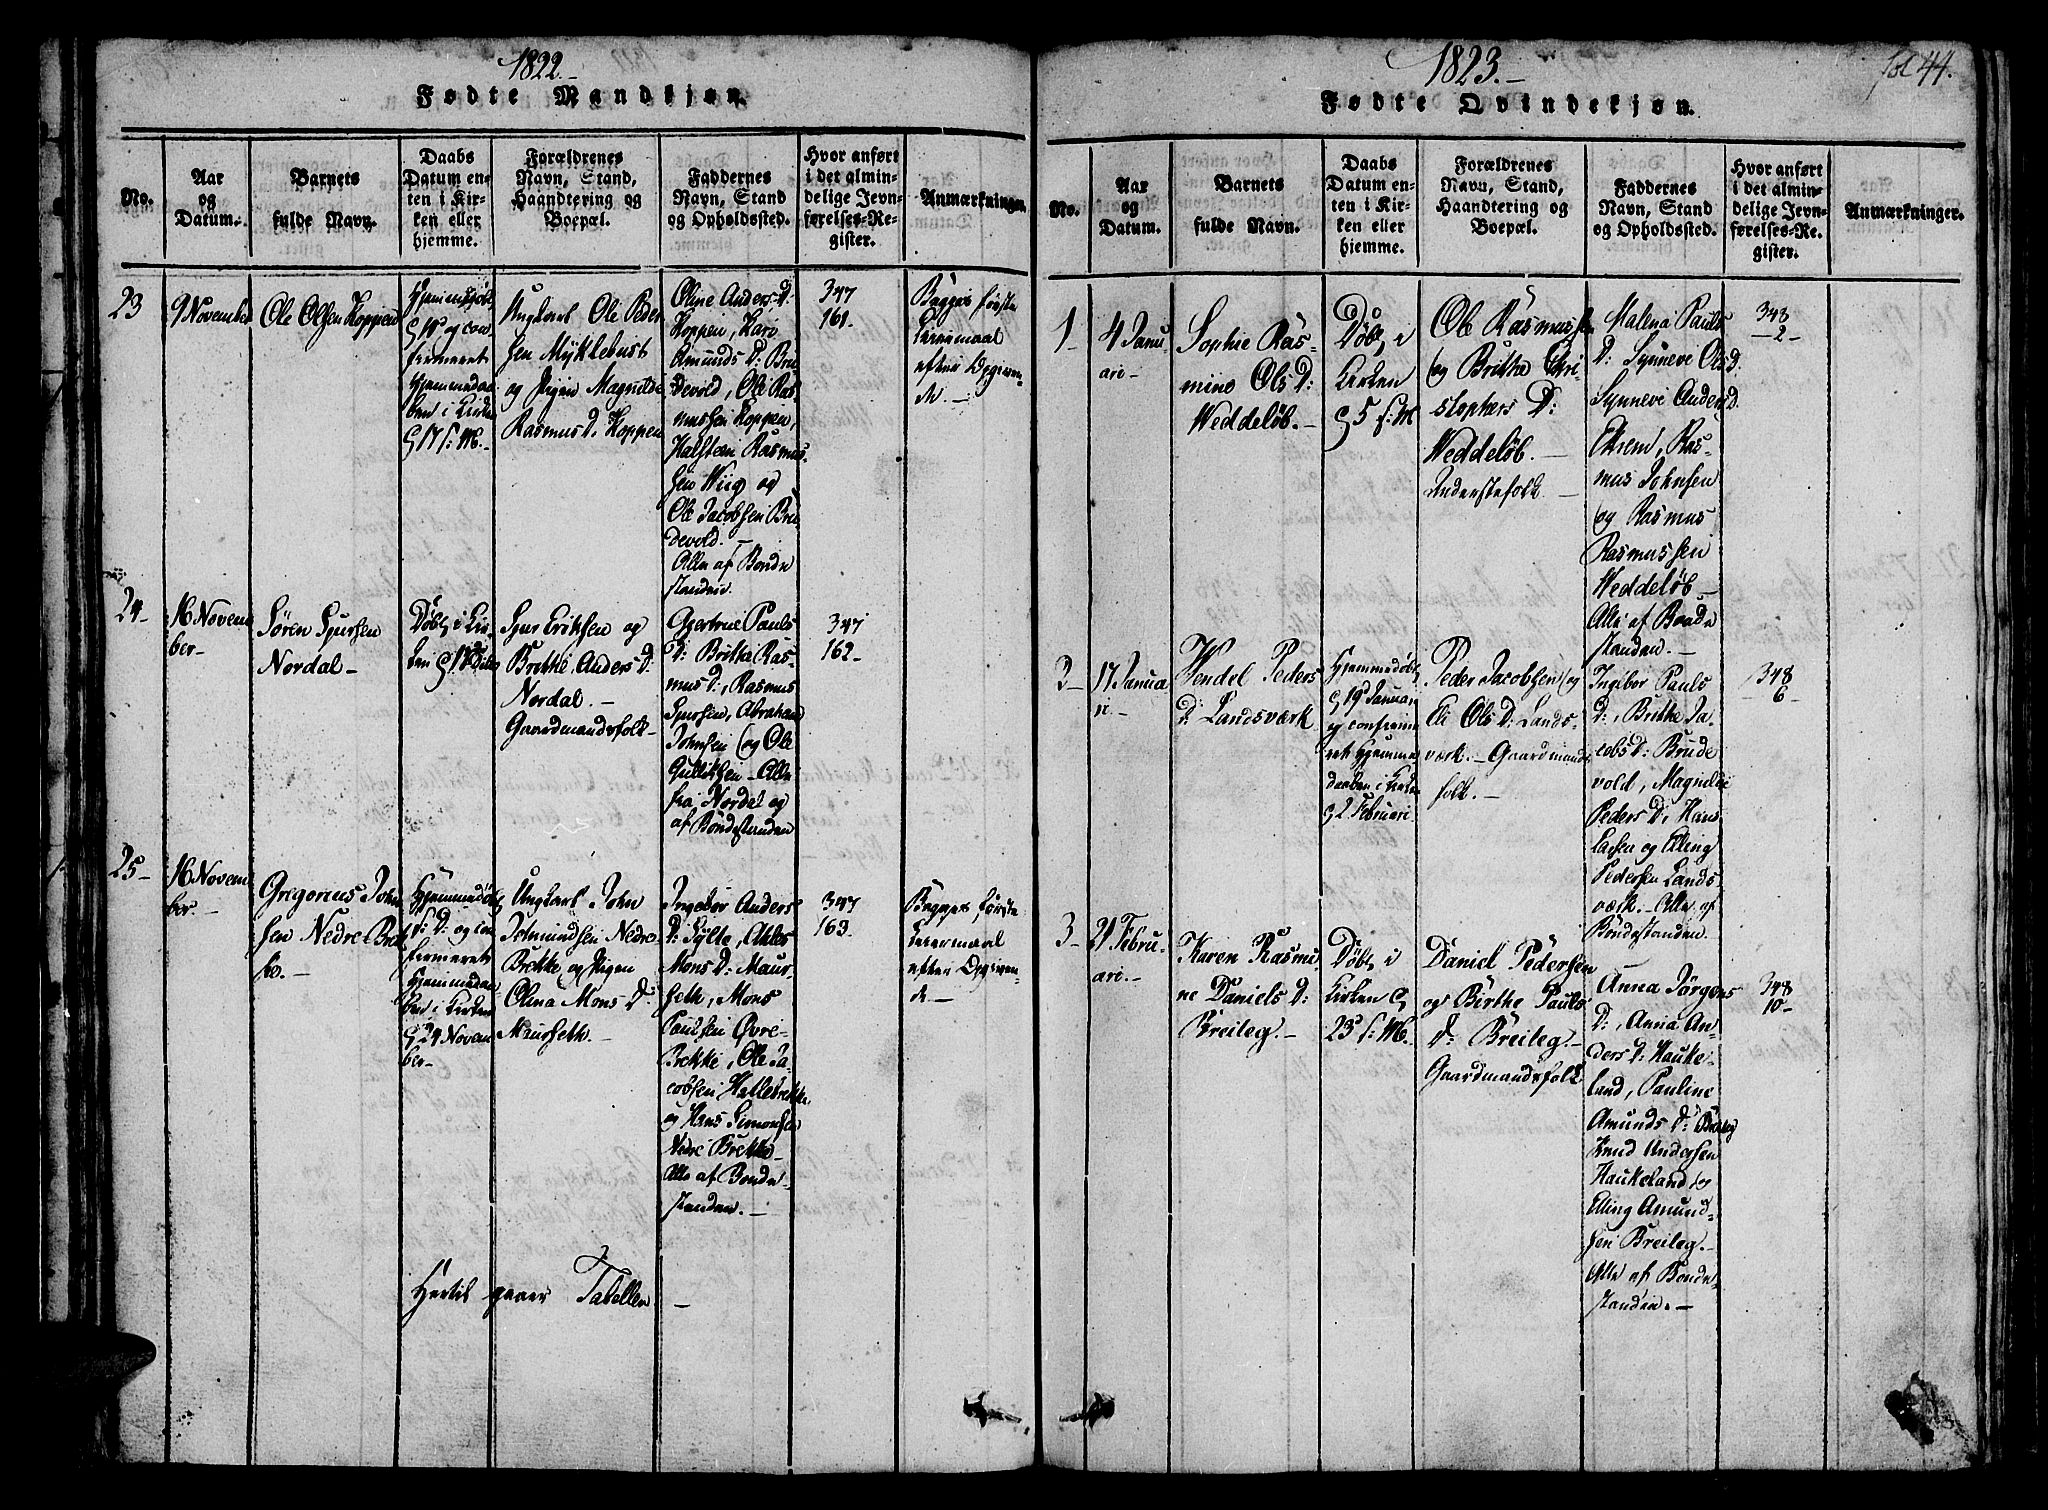 1822.
Fødte Mandkjøn.
No.
Aar
og
Datum.
Barnets
fulde Navn.
Daabs
Datum en-
ten i Kir-
ken eller
hjemme.
Forældrenes
Navn, Stand,
Haandtering og
Boepæl.
Faddernes
Navn, Stand
og Opholdssted.
Hvor anført
i det almin-
delige Jevn-
førelses-Re-
gister.
Anmærkninger.
23
9 November
Ole Olsen Koppen
Hjemmedøbt
og con-
firmeret
Hjemmedaa-
ben i Kirken
17 s: M.
Ungkarl Ole Peder
sen Myklebust
og Pigen Magnilde
Rasmus D. Koppen
Oline Anders D:
Koppen, Kari
Amunds D: Bru
devold, Ole Ras
mussen Koppen,
Halsten Rasmus
sen Wiig og
Ole Jacobsen Bru
devold. –
Alle af Bonde
standen.
347
161.
Begges første
Leiermaal
efter Opgiven-
de. –
24 –
16 Novem
ber –
Søren Spursen
Nordal –
Døbt i Kir-
ken
Spur Eriksen og
Brithe Anders D:
Nordal. –
Gaardmandsfolk –
Gjertrue Pauls
D: Brithe Ras-
mus D:, Rasmus
Spursen, Abraham
Johnsen og Ole
Gulliksen – Alle
fra Nordal og
af Bondestanden
347
162 –
25 –
16 Novem
ber. –
Grigorius John
sen Nedre Brek
ke. –
Hjemmedøbt
s: D: og con
firmeret
Hjemmedaa
ben i Kirken
24 Novem
ber –
Ungkarl John
Johnundsen Nedre
Brekke og Pigen
Olina Mons D:
Maurseth. –
Ingebor Anders
D: Sylte, Ahles
Mons D: Maur
seth, Mons
Paulsen Øvre-
Brekke, Ole Ja-
cobsen Hellebrekke
og Hans Simonsen
Nedre Brekke –
Alle af Bonde-
standen. –
347
163.
Begges første
Leiermaal
efter Opgiven
de –
Hertil gaaer Tabellen –
1823. –
fol 44.
Fødte Qvindekjøn.
No.
Aar
og
Datum.
Barnets
fulde Navn.
Daabs
Datum en-
ten i Kir-
ken eller
hjemme.
Forældrenes
Navn, Stand,
Haandtering og
Boepæl.
Faddernes
Navn, Stand
og Opholdssted.
Hvor anført
i det almin-
delige Jevn-
førelses-Re-
gister.
Anmærkninger.
1 –
4 Janu
ari –
Sophie Ras-
mine Ols D:
Weddeløb. –
Døbt i
Kirken
5 s: M
Ole Rasmussen
og Brithe Chri-
stophers D:
Weddeløb. –
Inderstefolk –
Malena Pauls
D: Synneve Ols D.
Synneve Anders D.
Ekrem, Ras-
mus Johnsen
og Rasmus
Rasmussen
Weddeløb –
Alle af Bonde
standen. –
348
2 –
2 –
17 Janua
ri. –
Wendel Peders
D: Landsværk
Hjemmedøbt
19 Januari
og confirme
ret Hjemme
daaben i Kirken
2 Februari.
Peder Jacobsen og
Eli Ols D: Lands-
værk. – Gaardmands
folk. –
Ingebor Pauls
D:, Brithe Ja-
cobs D: Brude
vold, Magnilde
Peders D: Hans
Larsen og Elling
Pedersen Lands-
værk. – Alle af
Bondestanden.
348
6
3 –
21 Febru-
ari. –
Karen Rasmi
ne Daniels D:
Breileg. –
Døbt i
Kirken
23 s: M.
Daniel Pedersen
og Birthe Pauls
D: Breileg. –
Gaardmandsfolk
Anna Jørgens
D:, Anna An-
ders D: Hauke-
land, Pauline
Amunds D: Breileg
Knud Andersen
Haukeland og
Elling Amund-
sen Breileg. –
Alle af Bonde-
standen. –
348
10 –